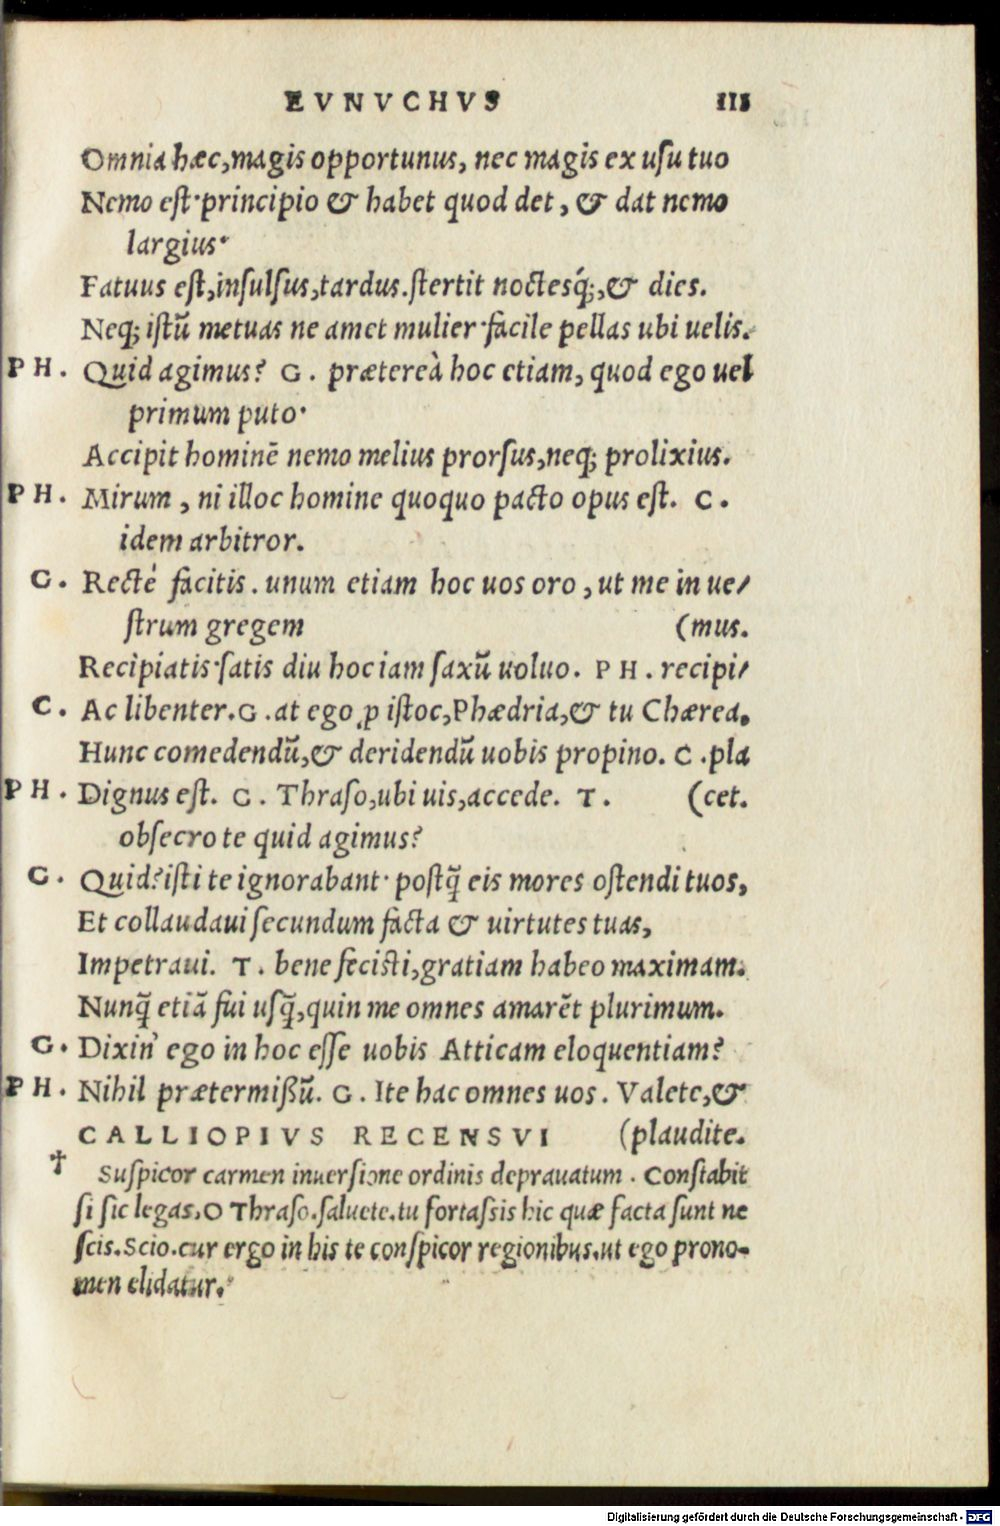 EVNVCHVS 111
Omnia hæc,magis opportunus, nec magis ex usu tuo
Nemo est·principio & habet quod det, & dat nemo
largius·
Fatuus est,insulsus,tardus.stertit noctesq́;,& dies.
Neq; istũ metuas ne amet mulier·facile pellas ubi uelis.
PH. Quid agimus? G. prætereà hoc etiam, quod ego uel
primum puto·
Accipit hominẽ nemo melius prorsus,neq; prolixius.
PH. Mirum , ni illoc homine quoquo pacto opus est. C.
idem arbitror.
G. Rectè facitis. unum etiam hoc uos oro , ut me in ue/
strum gregem (mus.
Recipiatis·satis diu hoc iam saxũ uoluo. PH. recipi/
C. Ac libenter.G.at ego ꝓ istoc,Phædria,& tu Chærea.
Hunc comedendũ,& deridendũ uobis propino. C.pla
PH. Dignus est. G. Thraso,ubi uis,accede. T. (cet.
obsecro te quid agimus?
G. Quid?isti te ignorabant· postq̃ eis mores ostendi tuos,
Et collaudaui secundum facta & uirtutes tuas,
Impetraui. T. bene fecisti,gratiam habeo maximam.
Nunq̃ etiã fui usq̃,quin me omnes amarẽt plurimum.
G. Dixin' ego in hoc esse uobis Atticam eloquentiam?
PH. Nihil prætermißũ. G. Ite hac omnes uos. Valete,&
CALLIOPIVS RECENSVI (plaudite.
† Suspicor carmen inuersione ordinis deprauatum . Constabit
si sic legas.O Thraso.saluete.tu fortassis hic quæ facta sunt ne
scis.Scio.cur ergo in his te conspicor regionibus.ut ego prono-
men elidatur.
Digitalisierung gefördert durch die Deutsche Forschungsgemeinschaft - DFG